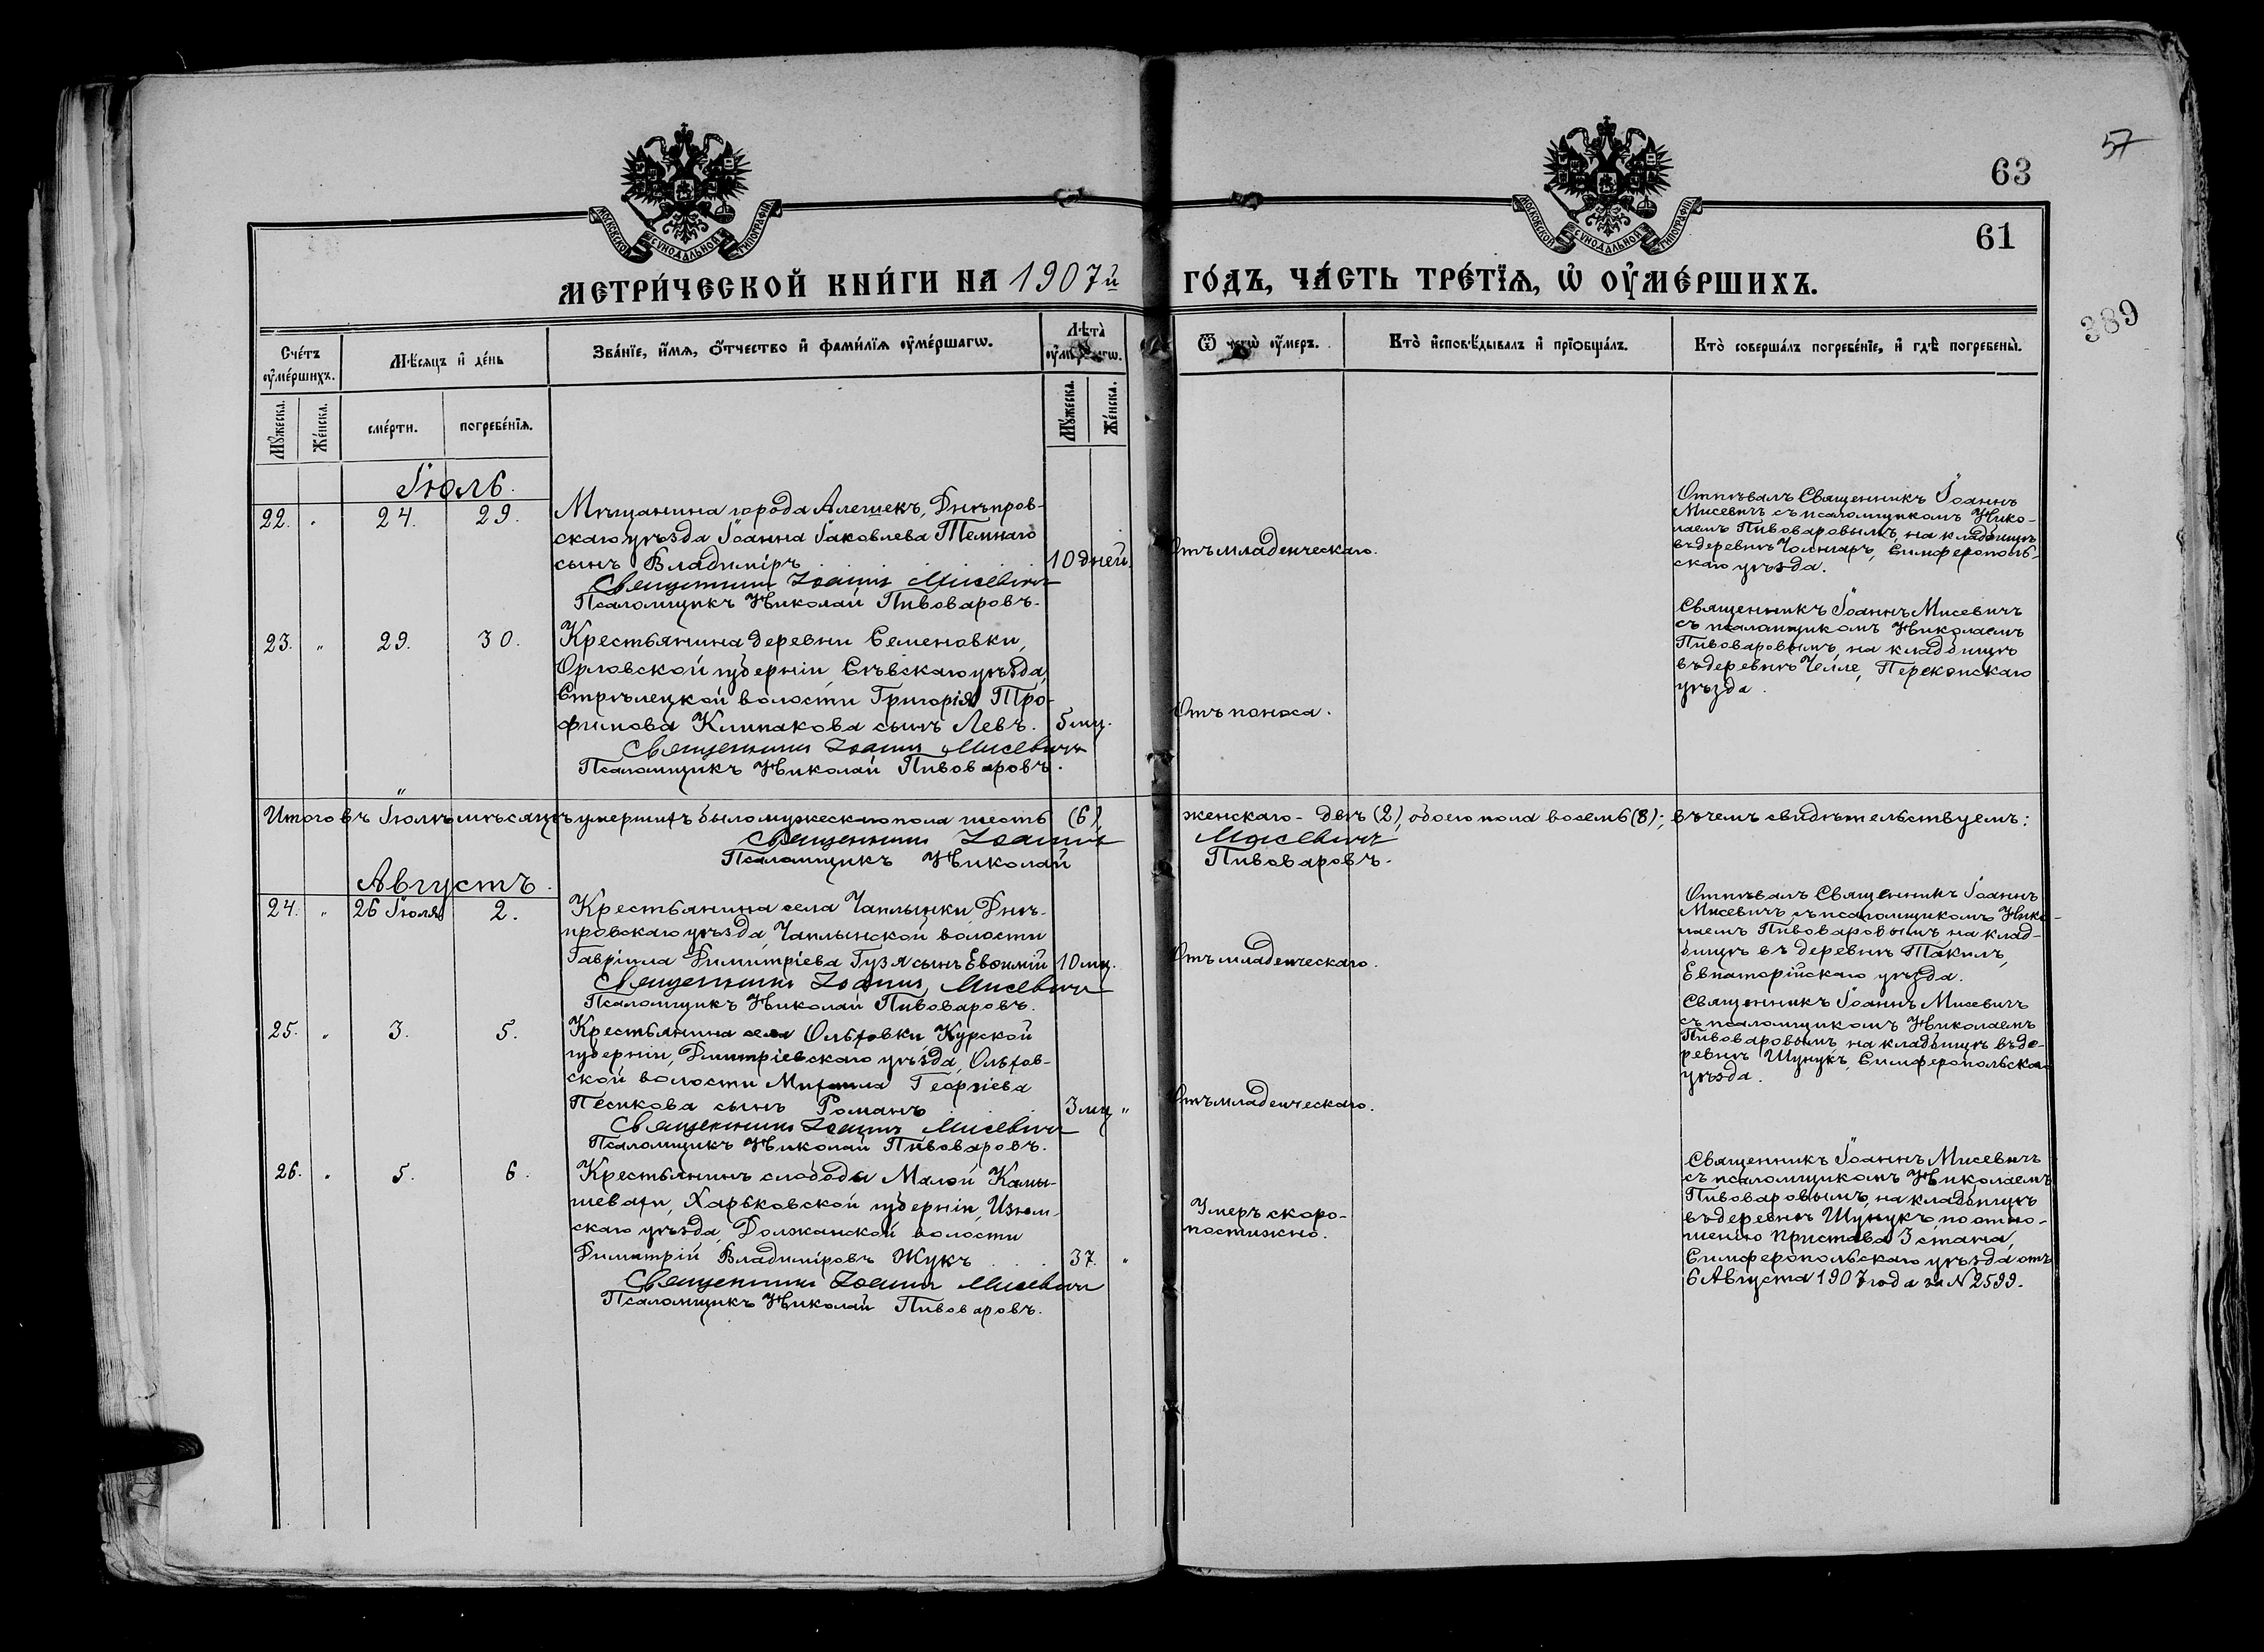 57
63
61
389
МОСКОВСКОЙ СѴНОДАЛЬНОЙ ТИПОГРАФІИ
МОСКОВСКОЙ СѴНОДАЛЬНОЙ ТИПОГРАФІИ
МЕТРИ́ЧЕСКОЙ КНИ́ГИ НА 1907й ГО́ДЪ, ЧА́СТЬ ТРЕ́ТЇѦ, Ѡ ОУ҆МЕ́РШИХЪ.
Сче́тъ оу҆ме́ршихъ.
Мѣ́сяцъ и де́нь
Зва́нїе, и҆́мѧ, ѻ҆́тчество и҆ фами́лїѧ оу҆ме́ршагѡ.
Лѣта̀ оу҆ме́ршагѡ.
Ѿ чегѡ̀ оу҆́меръ.
Кто̀ и҆сповѣ́дывалъ и҆ прїѻбща́лъ.
Кто̀ соверша́лъ погребе́нїе, и҆ гдѣ̀ погребены̀.
Мꙋ́жеска.
Же́нска.
сме́рти.
погребе́нїѧ.
Мꙋ́жеска.
Же́нска.
Іюль.
22. " 24. 29.
Мѣщанина города Алешекъ, Днѣпров-
скаго уѣзда Іоанна Іаковлева Темнаго
сынъ Владиміръ 10 дней.
Священникъ Іоаннъ Мисевичъ
Псаломщикъ Николай Пивоваровъ.
Отъ младенческаго.
Отпѣвалъ Священникъ Іоаннъ
Мисевичъ съ псаломщикомъ Нико-
лаемъ Пивоваровымъ, на кладбищѣ
въ деревнѣ Чонгаръ, Симферополь-
скаго уѣзда.
23. " 29. 30.
Крестьянина деревни Семеновки,
Орловской губерніи, Сѣвскаго уѣзда,
Стрѣлецкой волости Григорія Тро-
фимова Климакова сынъ Левъ. 5 мц.
Священникъ Іоаннъ Мисевичъ
Псаломщикъ Николай Пивоваровъ.
Отъ поноса.
Священникъ Іоаннъ Мисевичъ
съ псаломщикомъ Николаемъ
Пивоваровымъ, на кладбищѣ
въ деревнѣ Челле, Перекопскаго
уѣзда.
Итого въ Іюлѣ мѣсяцѣ умершихъ было мужескаго пола шесть (6), женскаго - двѣ (2), обоего пола восемь (8); въ чемъ свидѣтельствуемъ:
Священникъ Іоаннъ Мисевичъ
Псаломщикъ Николай Пивоваровъ.
Августъ.
24. " 26 Іюля 2.
Крестьянина села Чаплынки, Днѣ-
провскаго уѣзда, Чаплынской волости
Гавріила Димитріева Гузя сынъ Евѳимій 10 мц.
Священникъ Іоаннъ Мисевичъ
Псаломщикъ Николай Пивоваровъ.
Отъ младенческаго.
Отпѣвалъ Священникъ Іоаннъ
Мисевичъ, съ псаломщикомъ Нико-
лаемъ Пивоваровымъ на клад-
бищѣ въ деревнѣ Такилъ,
Евпаторійскаго уѣзда.
25. " 3. 5.
Крестьянина села Ольховки Курской
губерніи, Димитріевскаго уѣзда, Ольхов-
ской волости Михаила Георгіева
Песикова сынъ Романъ 3 мц "
Священникъ Іоаннъ Мисевичъ
Псаломщикъ Николай Пивоваровъ.
Отъ младенческаго.
Священникъ Іоаннъ Мисевичъ
съ псаломщикомъ Николаемъ
Пивоваровымъ на кладбищѣ въ де-
ревнѣ Шунукъ, Симферопольскаго
уѣзда.
26. " 5. 6.
Крестьянинъ слободы Малой Камы-
шевахи, Харьковской губерніи, Изюм-
скаго уѣзда, Должанской волости
Димитрій Владиміровъ Жукъ 37. "
Священникъ Іоаннъ Мисевичъ
Псаломщикъ Николай Пивоваровъ.
Умеръ скоро-
постижно.
Священникъ Іоаннъ Мисевичъ
съ псаломщикомъ Николаемъ
Пивоваровымъ, на кладбищѣ
въ деревнѣ Шунукъ, по отно-
шенію Пристава 3 стана,
Симферопольскаго уѣзда отъ
6 Августа 1907 года за № 2599.